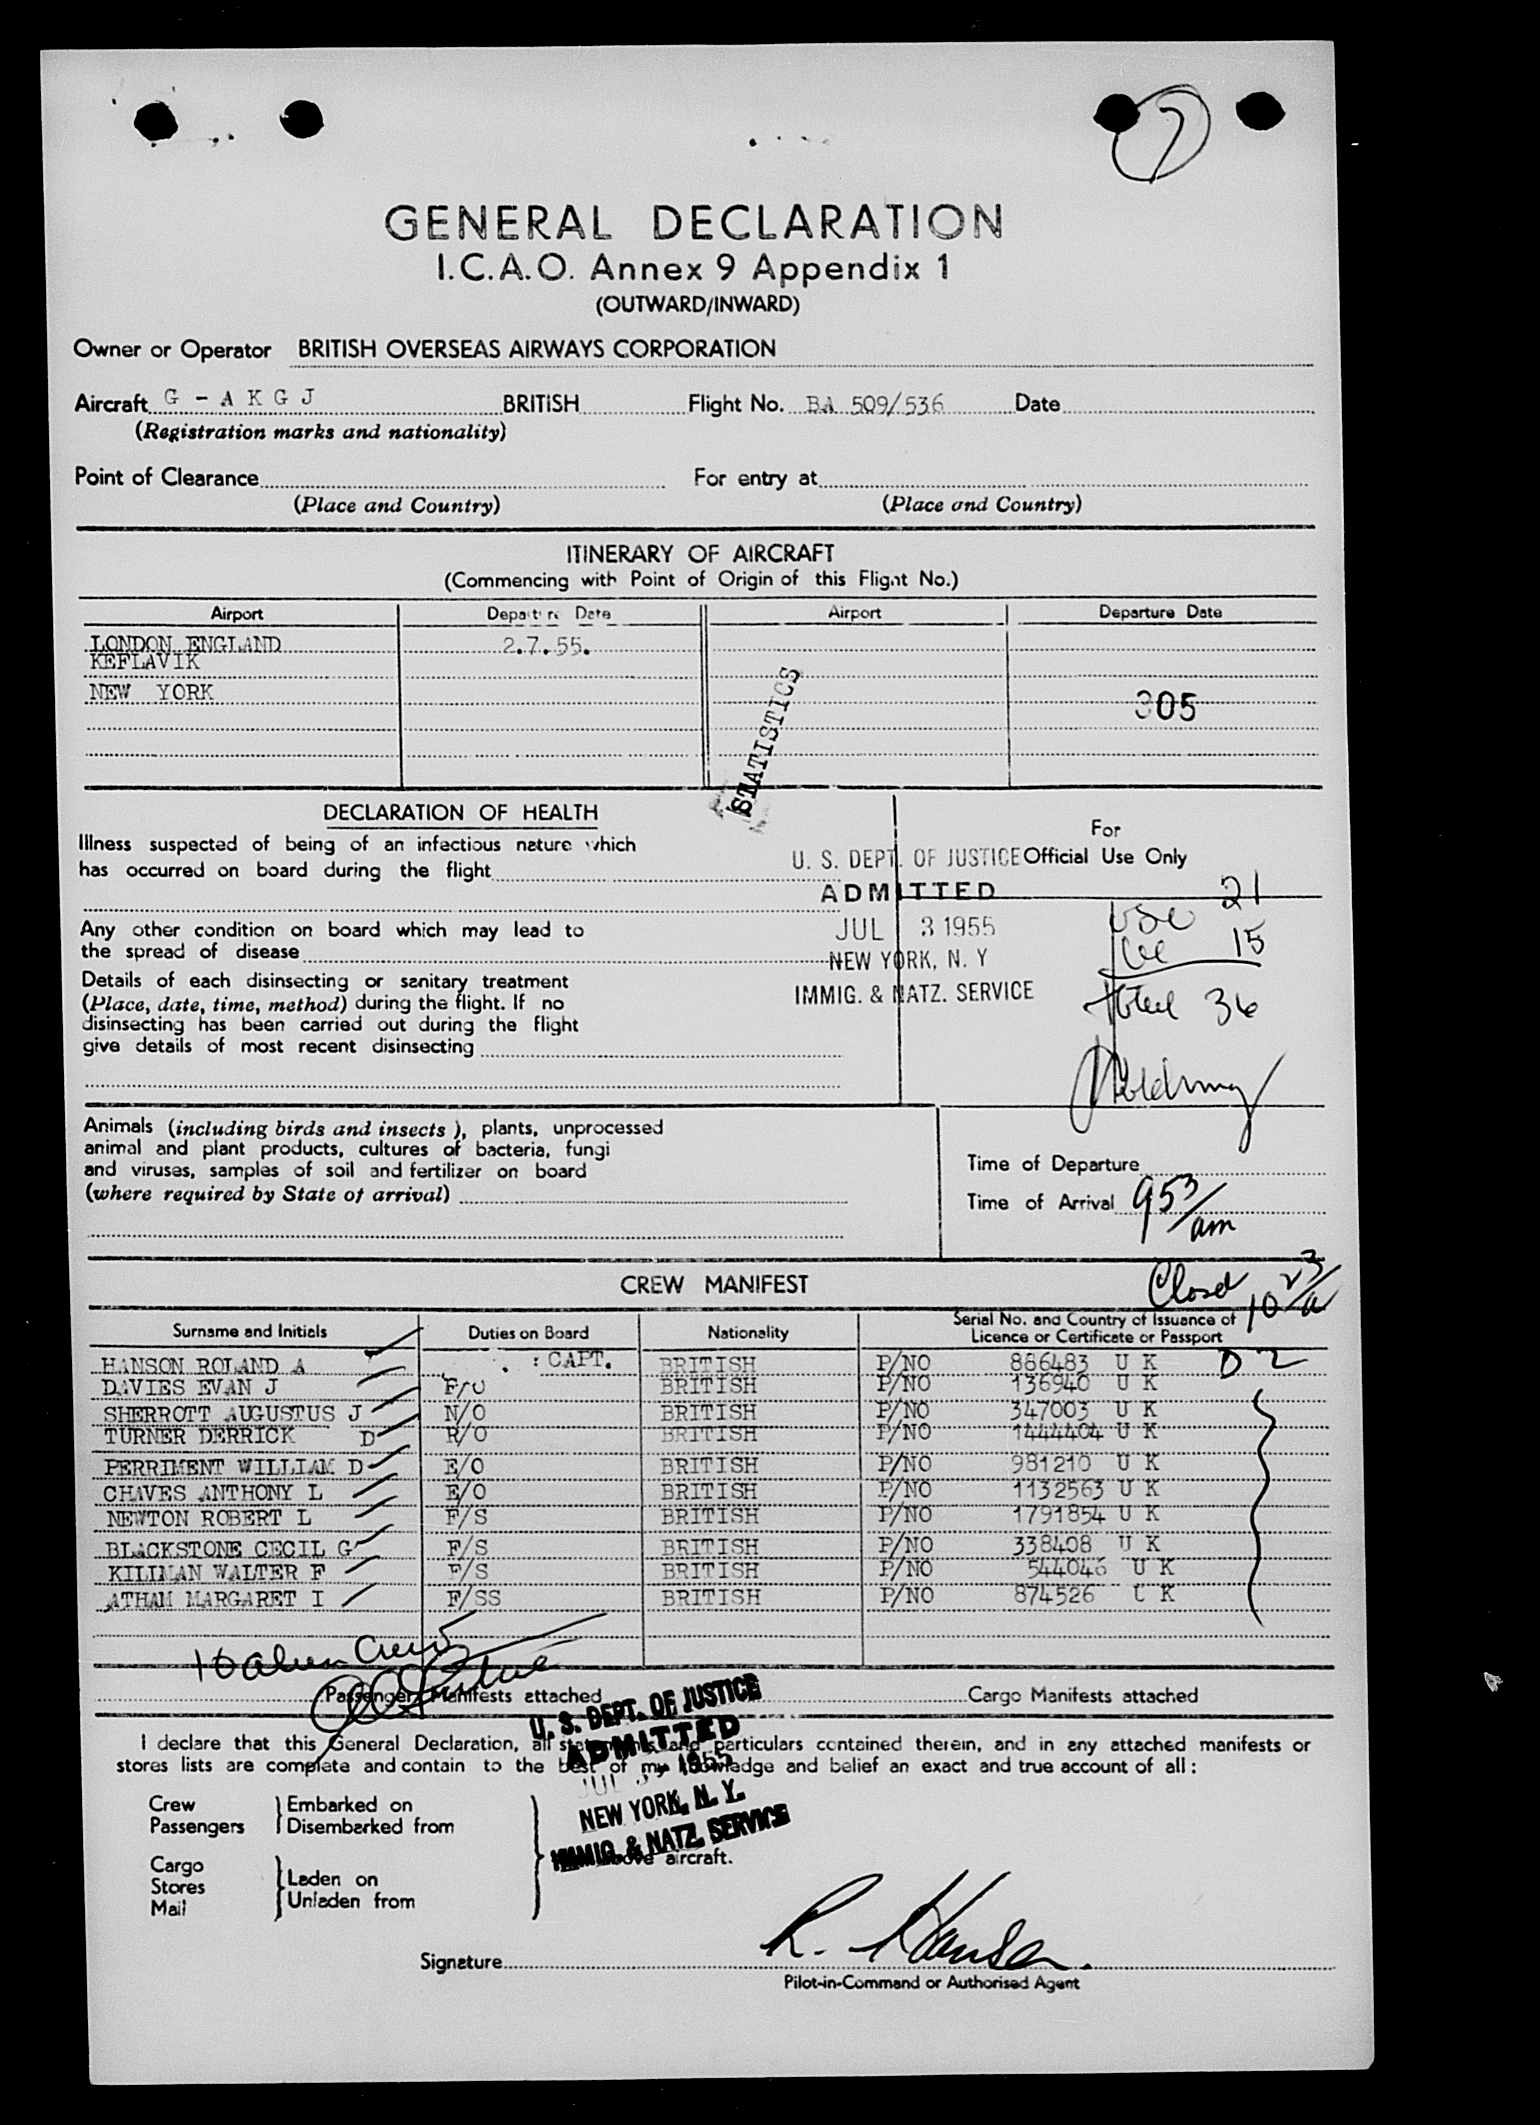 7
GENERAL DECLARATION
I.C.A.O. Annex 9 Appendix 1
(OUTWARD/INWARD)
Owner or Operator BRITISH OVERSEAS AIRWAYS CORPORATION
Aircraft G - A K G J BRITISH Flight No. BA 509/536 Date
(Registration marks and nationality)
Point of Clearance For entry at
(Place and Country) (Place and Country)
ITINERARY OF AIRCRAFT
(Commencing with Point of Origin of this Flight No.)
Airport Departure Date Airport Departure Date
LONDON ENGLAND 2.7.55.
KEFLAVIK
NEW YORK
305
STATISTICS
DECLARATION OF HEALTH
Illness suspected of being of an infectious nature which
has occurred on board during the flight
Any other condition on board which may lead to
the spread of disease
Details of each disinsecting or sanitary treatment
(Place, date, time, method) during the flight. If no
disinsecting has been carried out during the flight
give details of most recent disinsecting
For
Official Use Only
U. S. DEPT. OF JUSTICE
ADMITTED
JUL 3 1955
NEW YORK, N. Y
IMMIG. & NATZ. SERVICE
USC 21
15
Total 36
Animals (including birds and insects), plants, unprocessed
animal and plant products, cultures of bacteria, fungi
and viruses, samples of soil and fertilizer on board
(where required by State of arrival)
Time of Departure
Time of Arrival 953/am
CREW MANIFEST
Closed 10 23/a
Surname and Initials Duties on Board Nationality Serial No. and Country of Issuance of
Licence or Certificate or Passport
HANSON ROLAND A : CAPT. BRITISH P/NO 886483 U K D2
DAVIES EVAN J F/O BRITISH P/NO 136940 U K
SHERROTT AUGUSTUS J N/O BRITISH P/NO 347003 U K
TURNER DERRICK D R/O BRITISH P/NO 1444404 U K
PERRIMENT WILLIAM D E/O BRITISH P/NO 981210 U K
CHAVES ANTHONY L E/O BRITISH P/NO 1132563 U K
NEWTON ROBERT L F/S BRITISH P/NO 1791854 U K
BLACKSTONE CECIL G F/S BRITISH P/NO 338408 U K
KILLMAN WALTER F F/S BRITISH P/NO 544046 U K
ATHAM MARGARET I F/SS BRITISH P/NO 874526 U K
10 alien Crew
Passenger Manifests attached Cargo Manifests attached
U. S. DEPT. OF JUSTICE
ADMITTED
JUL 3 1955
NEW YORK, N. Y.
IMMIG. & NATZ. SERVICE
I declare that this General Declaration, all statements and particulars contained therein, and in any attached manifests or
stores lists are complete and contain to the best of my knowledge and belief an exact and true account of all:
Crew
Passengers
Embarked on
Disembarked from
Cargo
Stores
Mail
Laden on
Unladen from
above aircraft.
Signature R. Hanson.
Pilot-in-Command or Authorised Agent